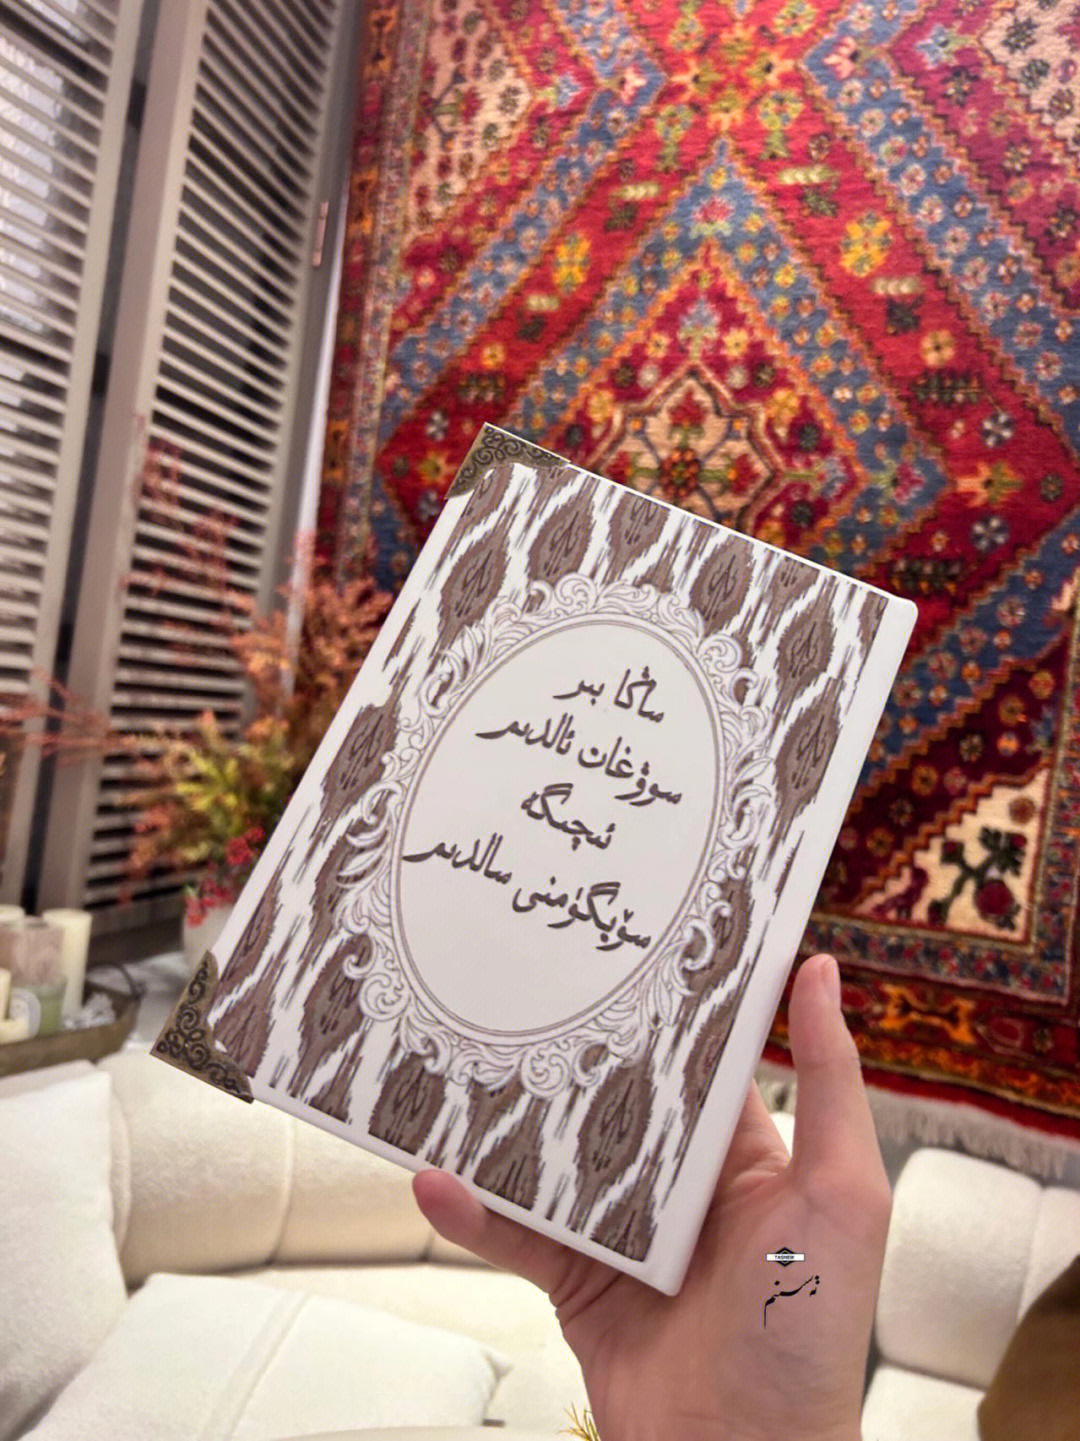 ساڭا بىر
سوۋغات ئالدىم
ئىچىگە
سۆيگۈمنى سالدىم
TASNEM
تەسنىم